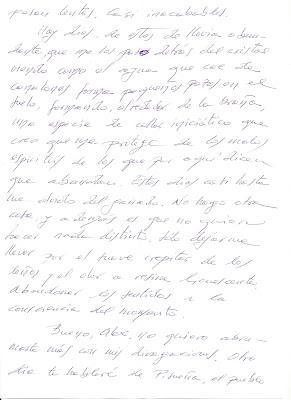 pasan lentos, casi inacabables.
Hay días, de estos de lluvia abun-
dante, que me los paso detrás del cristal
viendo como el agua que cae de
canalones forma pequeños pozos en el
suelo, formando, alrededor de la braña,
una especie de collar iniciático que
creo que me protege de los malos
espíritus de los que por aquí dicen
que abundan. Estos días casi hasta
me olvido del ganado. No hago otra
cosa y además es que no quiero
hacer nada distinto. Sólo dejarme
llevar por el suave crepitar de los
leños y el olor a resina
abandonar los sentidos a la
consciencia del momento.
Bueno, Alex, no quiero abru-
marte más con mis divagaciones. Otro
día te hablaré de Piñeña, el pueblo